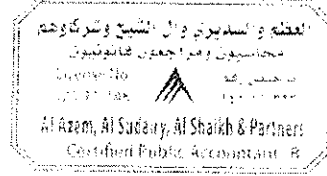 العظم والسديري وال الشيخ وشركاؤهم
محاسبون ومراجعون قانونيون
License No
Al Azem, Al Sudairy, Al Shaikh & Partners
Certified Public Accountant